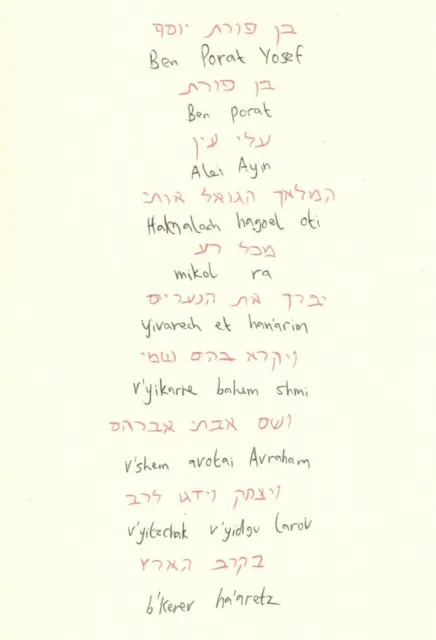 בן פורת יוסף
Ben Porat Yosef
בן פורת
Ben porat
עלי עין
Alei Ayin
המלאך הגואל אותי
HaMalach hagoel oti
מכל רע
mikol ra
יברך את הנערים
yivarech et han'arim
ויקרא בהם שמי
v'yikarre bahem shmi
ושם אבתי אברהם
v'shem avotai Avraham
ויצחק וידגו לרב
v'yitzchak v'yidgu larov
בקרב הארץ
b'kerev ha'aretz